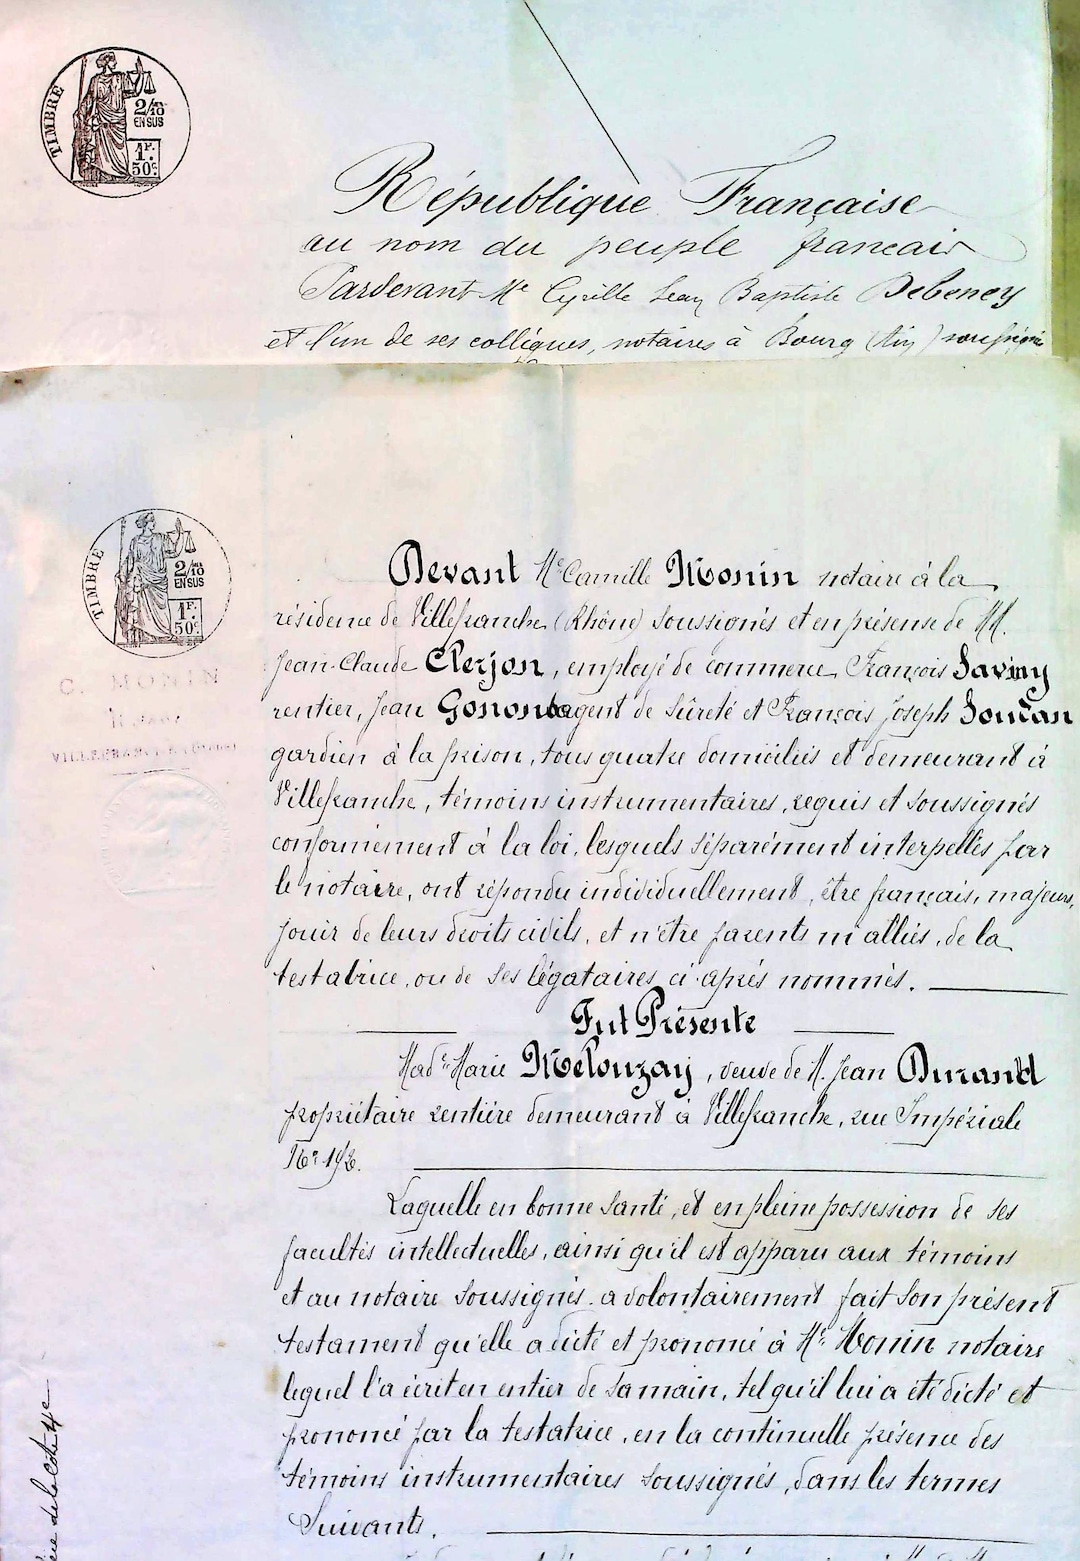 TIMBRE
2/10
EN SUS
1F.
50c.
République Française
au nom du peuple français
Pardevant Me Cyrille Jean Baptiste Debeney
et l'un de ses collègues, notaires à Bourg (Ain) soussignés
TIMBRE
2/10
EN SUS
1F.
50c.
C. MONIN
Notaire
VILLEFRANCHE (RHÔNE)
Devant Me Camille Monin notaire à la
résidence de Villefranche (Rhône) soussignés et en présense de MM.
Jean-Claude Clerjon, employé de commerce, François Savigny
rentier, Jean Gonon agent de Sûreté et François Joseph
gardien à la prison, tous quatre domiciliés et demeurant à
Villefranche, témoins instrumentaires, requis et soussignés
conformément à la loi, lesquels séparément interpellés par
le notaire, ont répondu individuellement, être français, majeurs,
jouir de leurs droits civils, et n'être parents ni alliés, de la
testatrice, ou de ses légataires ci-après nommés.
Fut Présente
Made Marie Melouzay, veuve de M. Jean Durand
propriétaire rentière demeurant à Villefranche, rue Impériale
No 192.
Laquelle en bonne santé, et en pleine possession de ses
facultés intellectuelles, ainsi qu'il est apparu aux témoins
et au notaire soussignés, a volontairement fait son présent
testament qu'elle a dicté et prononcé à Me Monin notaire
lequel l'a écrit en entier de sa main, tel qu'il lui a été dicté et
prononcé par la testatrice, en la continuelle présence des
témoins instrumentaires soussignés, dans les termes
Suivants.
de la côte